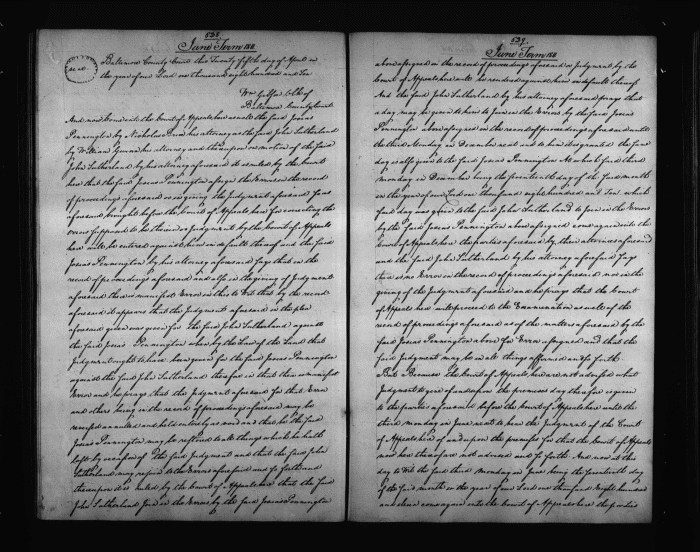 538
June Term 1811
Baltimore County Court this Twenty fifth day of April in
the year of our Lord one thousand eight hundred and Ten
SEAL
Wm Gibson Clk of
Baltimore County Court
And now here into the court of Appeals here as well the said Josias
Pennington by Nicholas his attorney as the said John Sutherland
by William his attorney and thereupon on motion of the said
John Sutherland by his attorney aforesaid it is ruled by the Court
here that the said Josias Pennington assign the Errors in the record
of proceedings aforesaid or in giving the Judgment aforesaid
aforesaid brought before the Court of Appeals here for correcting the
errors supposed to be therein or Judgment by the Court of Appeals
here will be entered against him in default thereof and the said
Josias Pennington by his attorney aforesaid says that in the
record of proceedings aforesaid and also in the giving of Judgment
aforesaid there is manifest Error in this to Wit that by the record
aforesaid it appears that the Judgment aforesaid in the plea
aforesaid given was given for the said John Sutherland against
the said Josias Pennington when by the Law of the Land that
Judgment ought to have been given for the said Josias Pennington
against the said John Sutherland therefore in that there is manifest
Error and he prays that the Judgment aforesaid for that Error
and others being in the record of proceedings aforesaid may be
reversed annulled and held entirely as void and that he the said
Josias Pennington may be restored to all things which he hath
lost by occasion of the said Judgment and that the said John
Sutherland may rejoin to the Errors aforesaid and so forth and
thereupon it is ruled by the Court of Appeals here that the said
John Sutherland Join in the Errors by the said Josias Pennington
539
June Term 1811
above assigned in the record of proceedings aforesaid or Judgment by the
Court of Appeals here will be rendered against him in default thereof
And the said John Sutherland by his attorney aforesaid prays that
a day may be given to him to Join in the Errors by the said Josias
Pennington above assigned in the record of proceedings aforesaid until
the third Monday in December next and to him it is granted the same
day is also given to the said Josias Pennington At which said third
Monday in December being the seventeenth day of the said month
in the year of our Lord one thousand eight hundred and Ten which
said day was given to the said John Sutherland to Join in the Errors
by the said Josias Pennington above assigned come again into the
Court of Appeals here the parties aforesaid by their attornies aforesaid
and the said John Sutherland by his attorney aforesaid says
there is no Error in the record of proceedings aforesaid nor in the
giving of the Judgment aforesaid and he prays that the Court
of Appeals here will proceed to the Examination as well of the
record of proceedings aforesaid as of the matters aforesaid by the
said Josias Pennington above for Error assigned and that the
said Judgment may be in all things affirmed and so forth
But Because the Court of Appeals here are not advised what
Judgment to give of and upon the premises day therefore is given
to the parties aforesaid before the Court of Appeals here until the
third Monday in June next to hear the Judgment of the Court
of Appeals here of and upon the premises for that the Court of Appeals
now here thereof are not advised and so forth And now at this
day to Wit the said third Monday in June being the seventeenth day
of the said month in the year of our Lord one thousand eight hundred
and eleven come again into the Court of Appeals here the parties